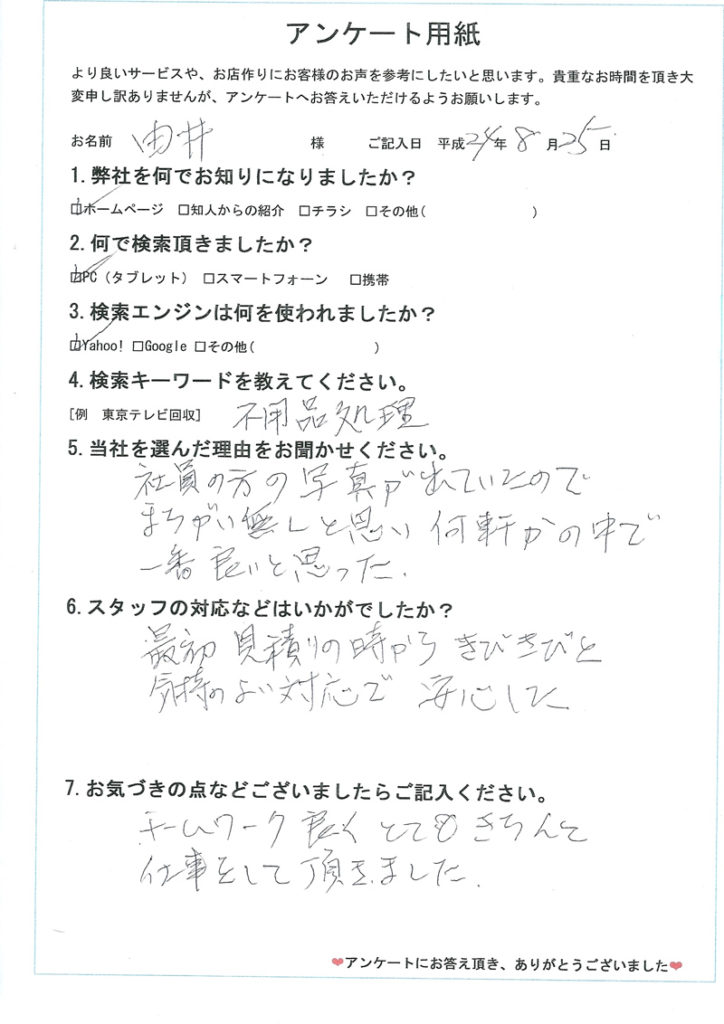 アンケート用紙
より良いサービスや、お店作りにお客様のお声を参考にしたいと思います。貴重なお時間を頂き大
変申し訳ありませんが、アンケートへお答えいただけるようお願いします。
お名前 由井 様 ご記入日 平成24年8月25日
1.弊社を何でお知りになりましたか？
☑ホームページ □知人からの紹介 □チラシ □その他( )
2.何で検索頂きましたか？
☑PC（タブレット） □スマートフォーン □携帯
3.検索エンジンは何を使われましたか？
☑Yahoo! □Google □その他( )
4.検索キーワードを教えてください。
[例 東京テレビ回収] 不用品処理
5.当社を選んだ理由をお聞かせください。
社員の方の写真が出ていたので
まちがい無しと思い何軒かの中で
一番良いと思った.
6.スタッフの対応などはいかがでしたか？
最初見積りの時からきびきびと
気持のよい対応で安心した
7.お気づきの点などございましたらご記入ください。
チームワーク良くとてもきちんと
仕事をして頂きました.
❤アンケートにお答え頂き、ありがとうございました❤